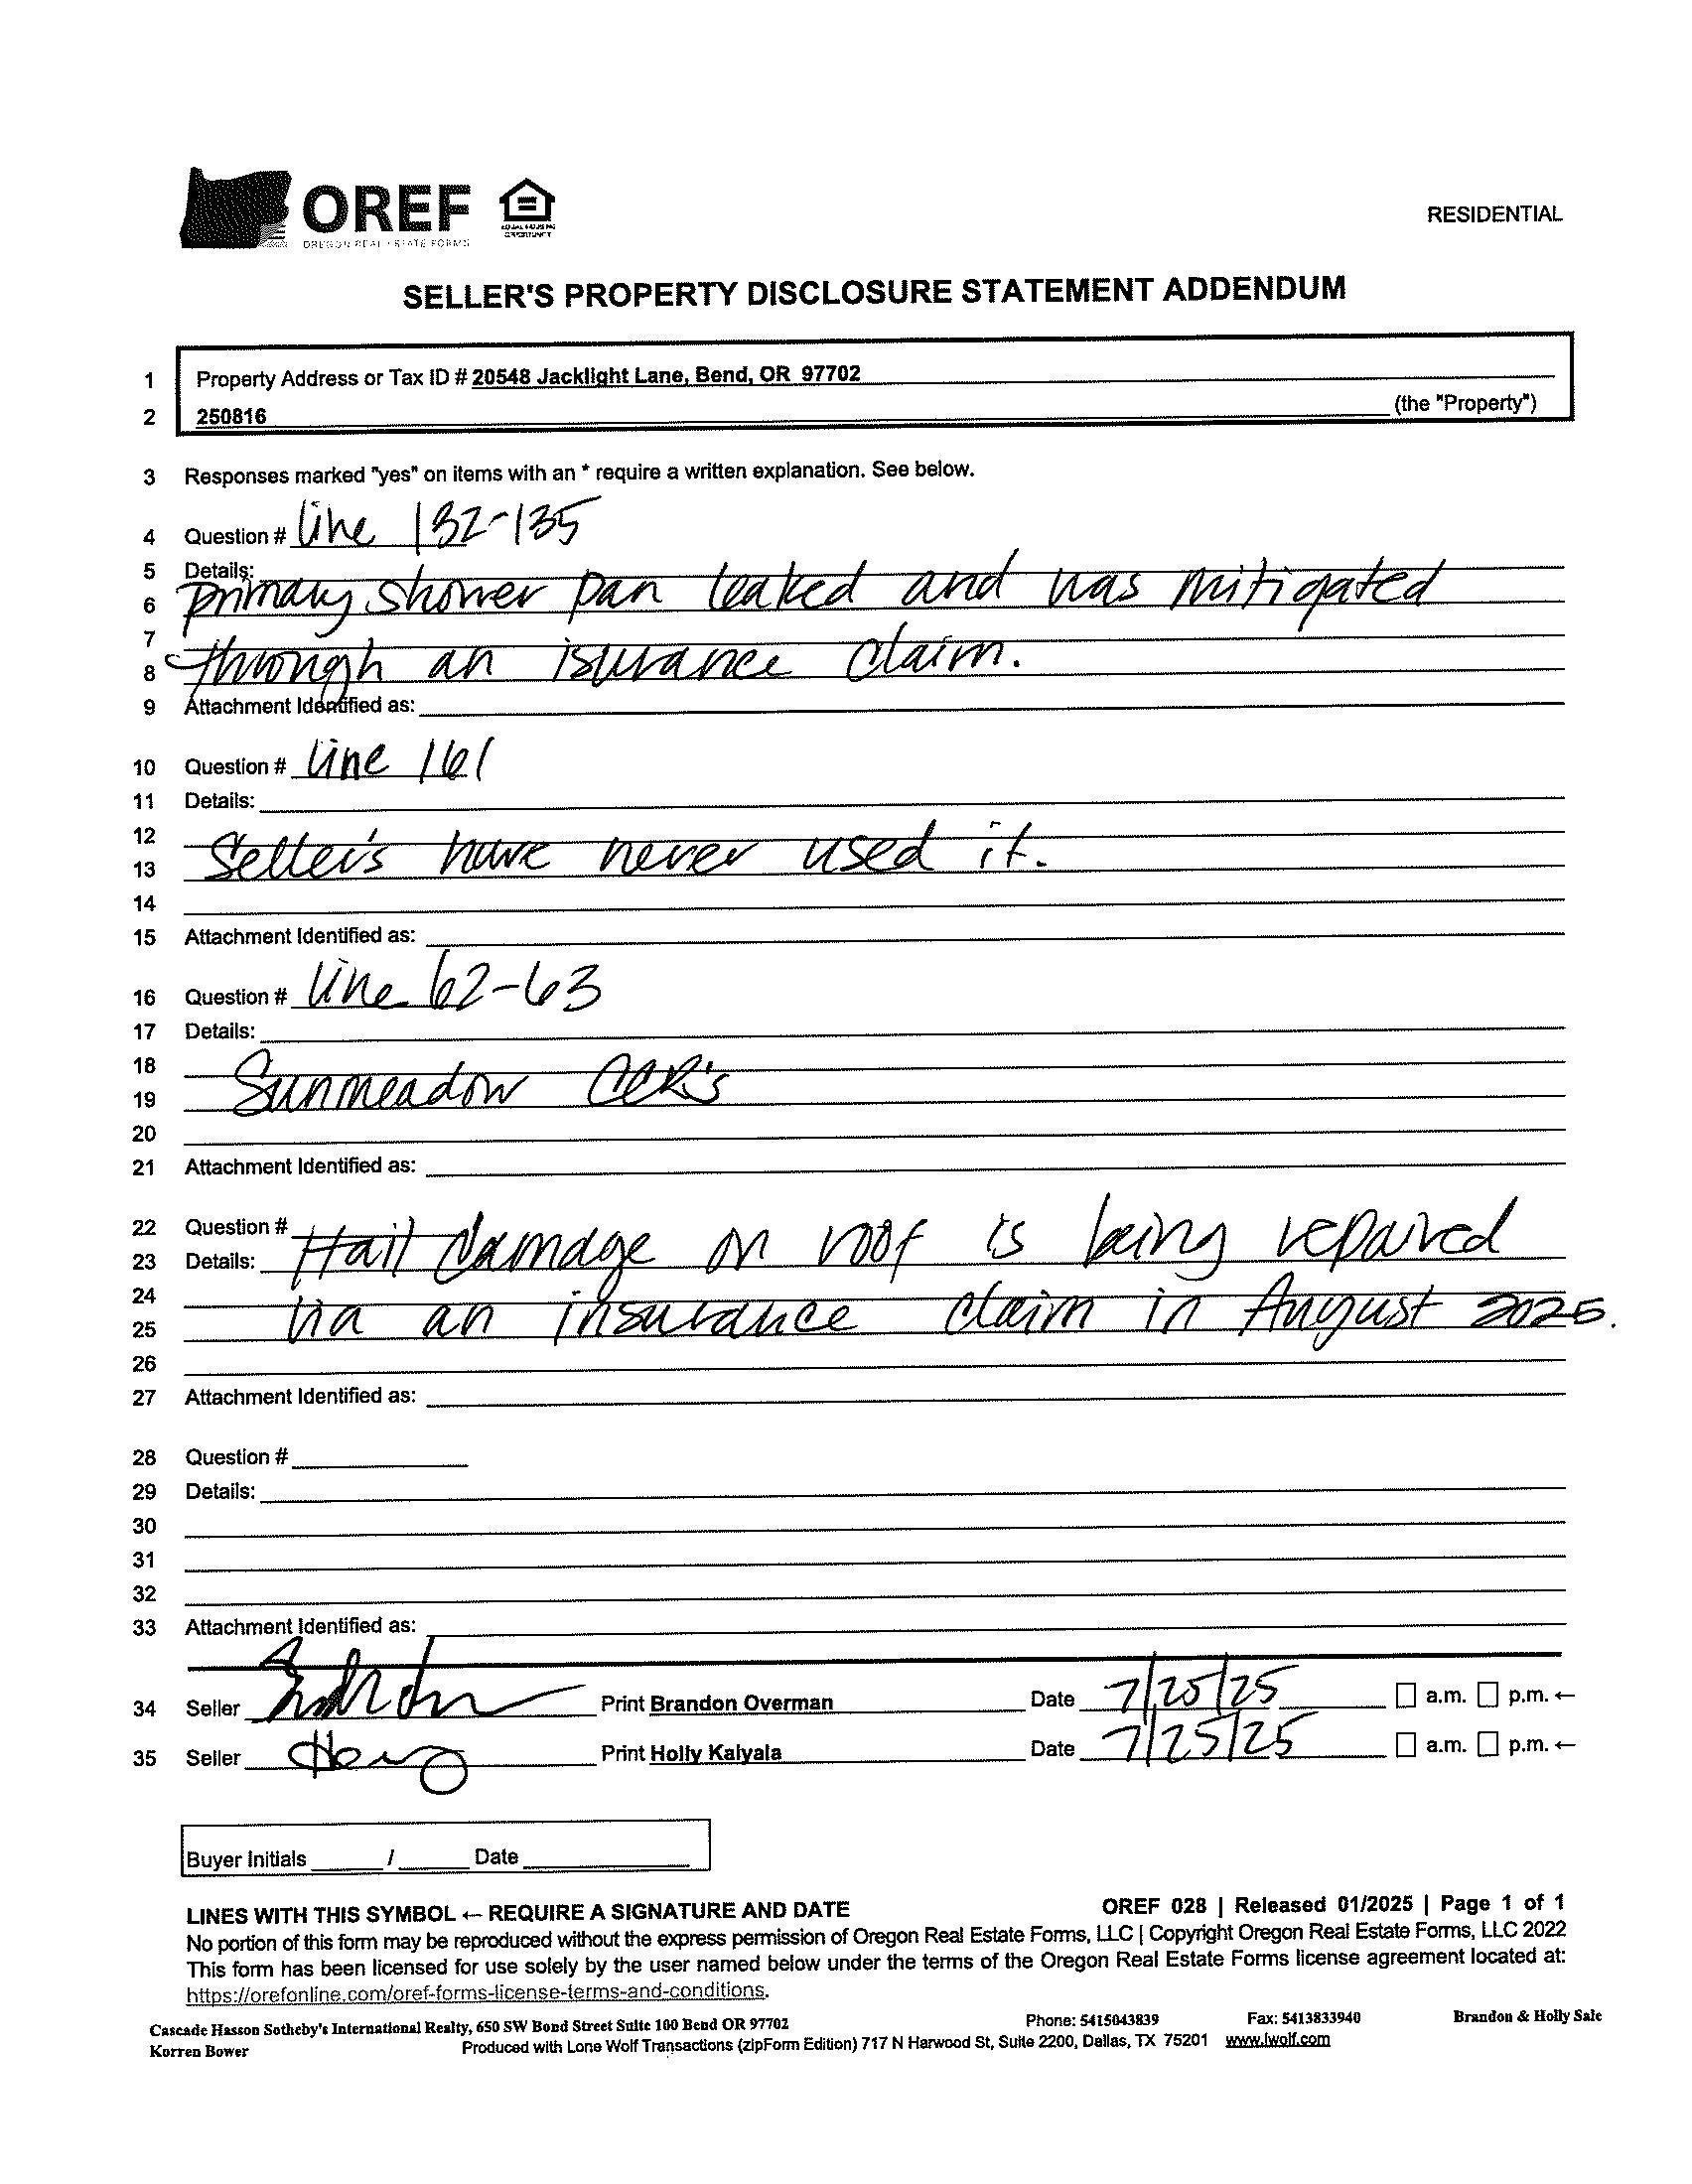 OREF
OREGON REAL ESTATE FORMS
EQUAL HOUSING
OPPORTUNITY
RESIDENTIAL
SELLER'S PROPERTY DISCLOSURE STATEMENT ADDENDUM
1 Property Address or Tax ID # 20548 Jacklight Lane, Bend, OR 97702
2 250816 (the "Property")
3 Responses marked "yes" on items with an * require a written explanation. See below.
4 Question # line 132-135
5 Details:
6 primary shower pan leaked and was mitigated
7
8 through an isurance claim.
9 Attachment Identified as:
10 Question # line 161
11 Details:
12
13 Seller's have never used it.
14
15 Attachment Identified as:
16 Question # line 62-63
17 Details:
18
19 Sunmeadow CCR's
20
21 Attachment Identified as:
22 Question #
23 Details: Hail damage on roof is being repaired
24
25 via an insurance claim in August 2025.
26
27 Attachment Identified as:
28 Question #
29 Details:
30
31
32
33 Attachment Identified as:
34 Seller Print Brandon Overman Date 7/25/25 a.m. p.m. ←
35 Seller Print Holly Kalyala Date 7/25/25 a.m. p.m. ←
Buyer Initials / Date
LINES WITH THIS SYMBOL ← REQUIRE A SIGNATURE AND DATE OREF 028 | Released 01/2025 | Page 1 of 1
No portion of this form may be reproduced without the express permission of Oregon Real Estate Forms, LLC | Copyright Oregon Real Estate Forms, LLC 2022
This form has been licensed for use solely by the user named below under the terms of the Oregon Real Estate Forms license agreement located at:
https://orefonline.com/oref-forms-license-terms-and-conditions.
Cascade Hasson Sotheby's International Realty, 650 SW Bond Street Suite 100 Bend OR 97702 Phone: 5415043839 Fax: 5413833940 Brandon & Holly Sale
Korren Bower Produced with Lone Wolf Transactions (zipForm Edition) 717 N Harwood St, Suite 2200, Dallas, TX 75201 www.lwolf.com